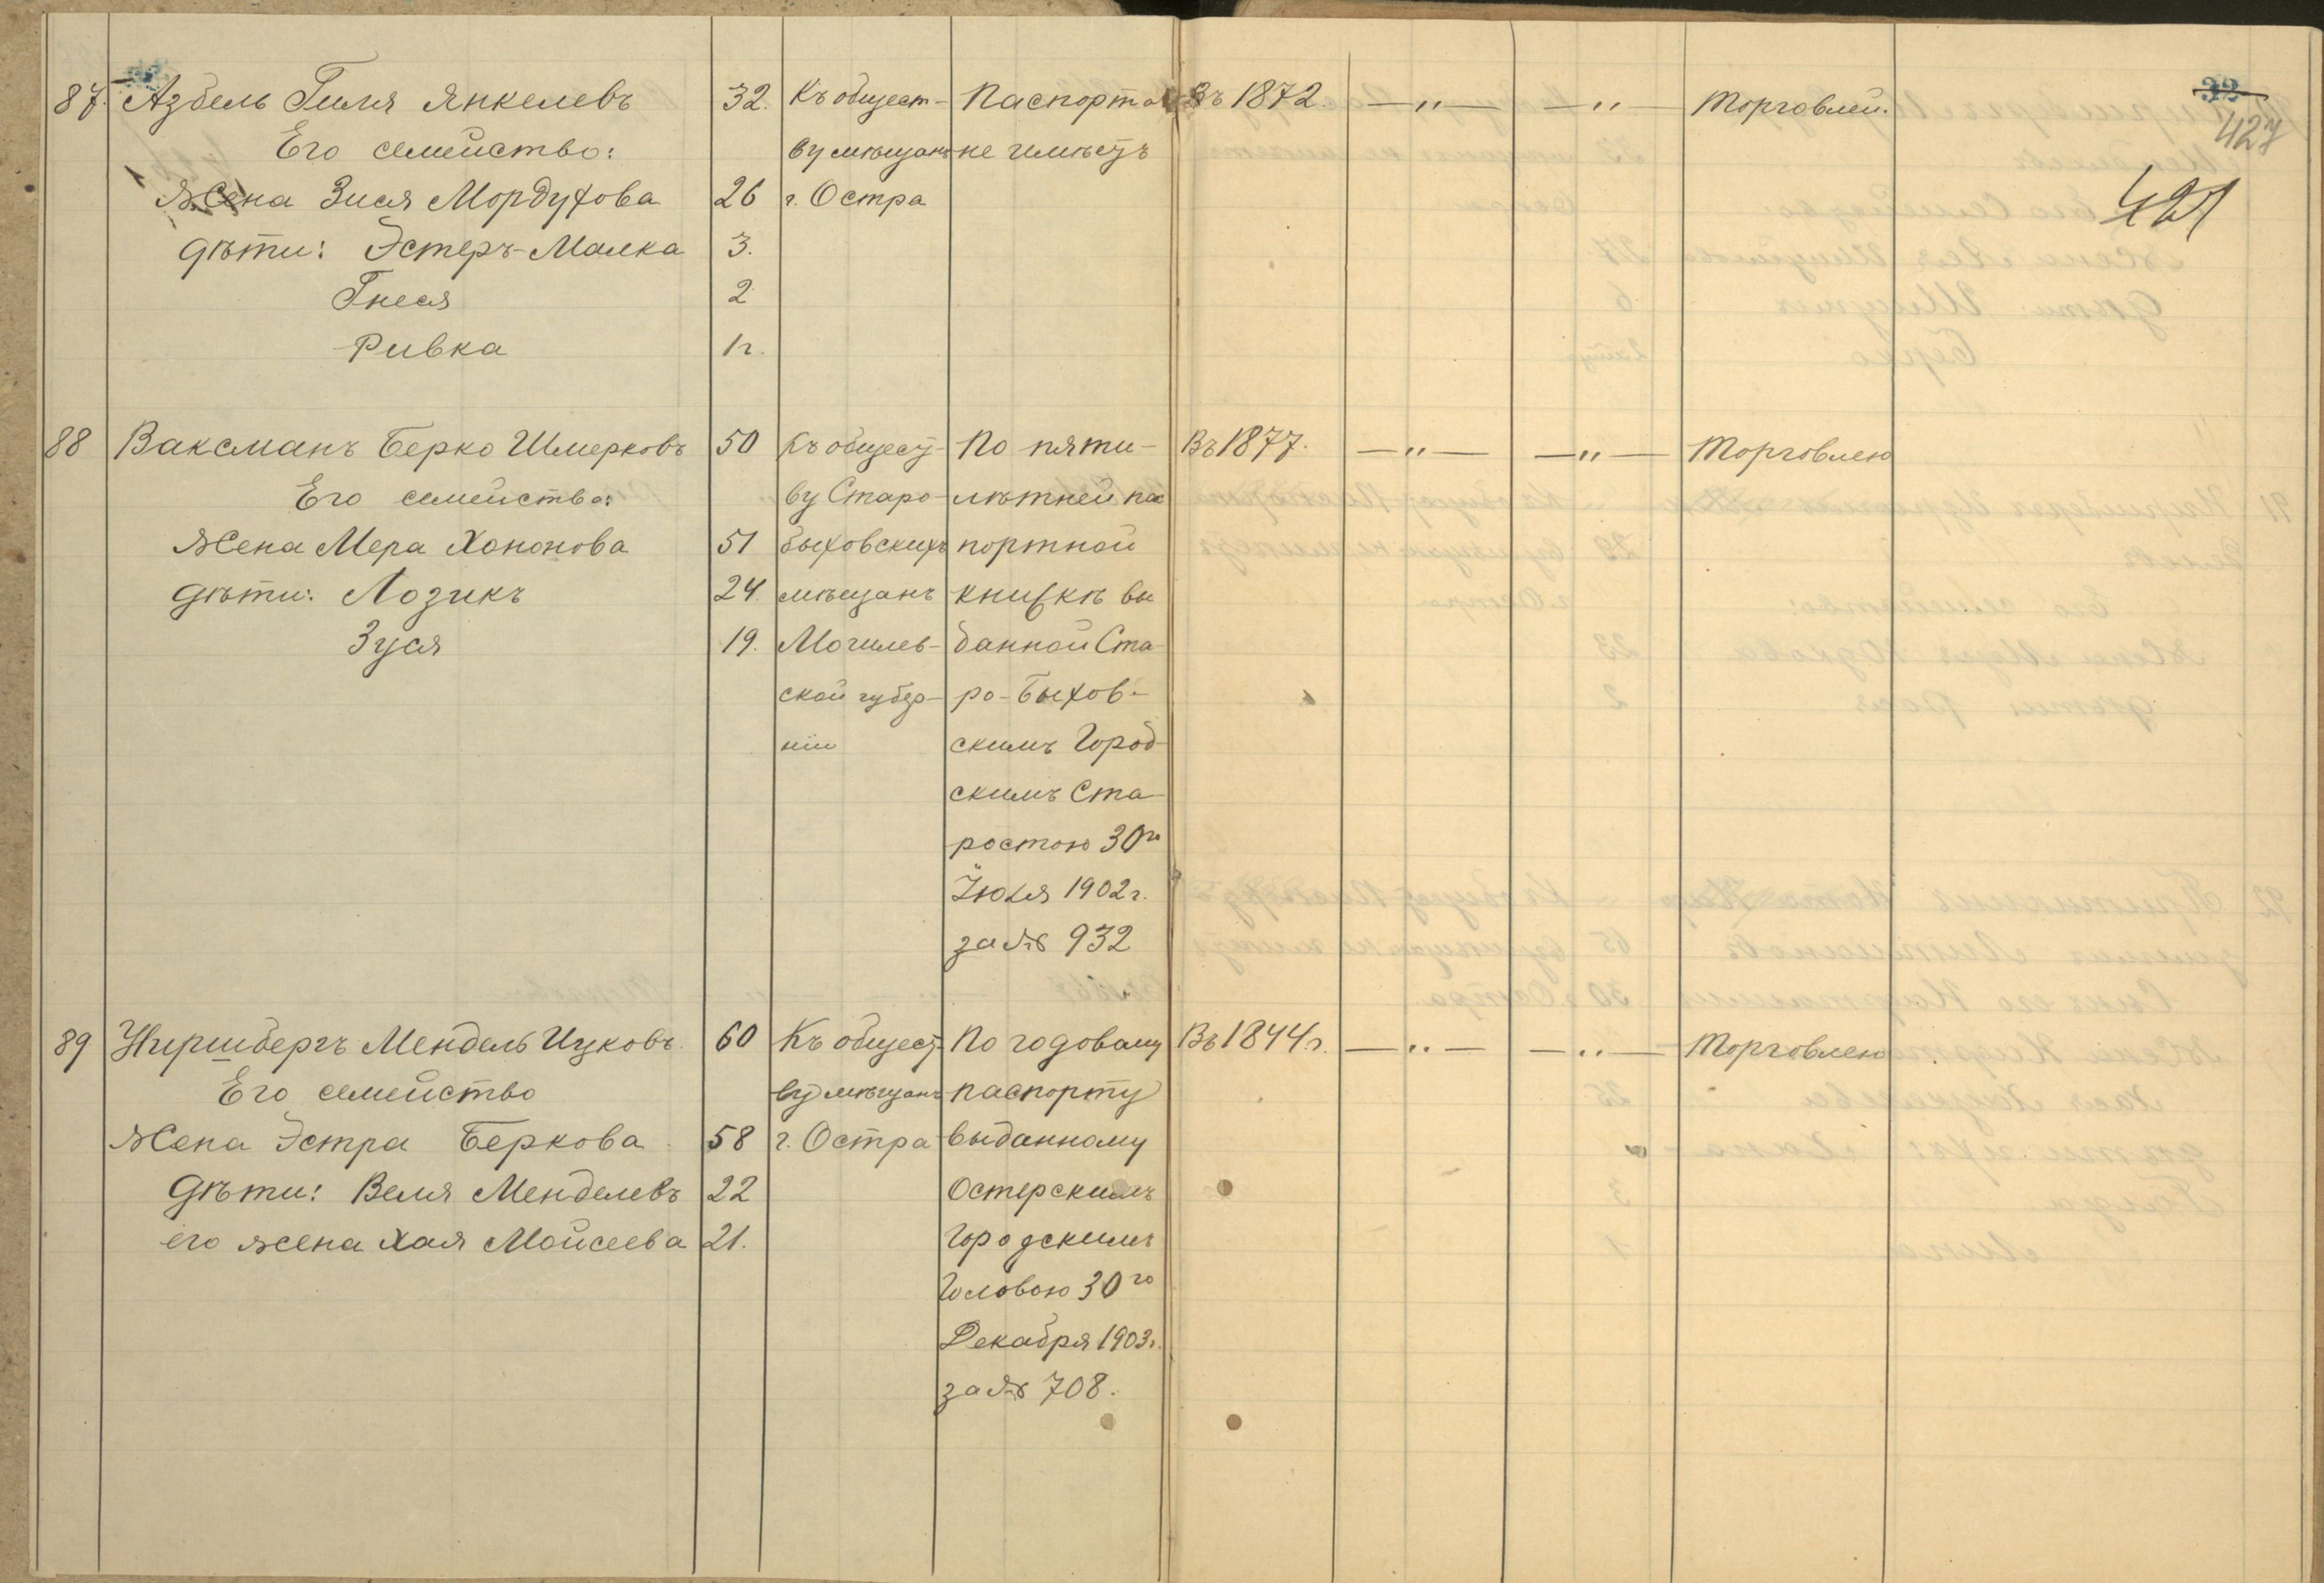 32
427
427
87. Азбель Гиля Янкелевъ 32. Къ общест- Паспорта Въ 1872. —"— —"— Торговлей.
Его семейство: ву мѣщанъ не имѣетъ
Жена Зися Мордухова 26 г. Остра
дѣти: Эстеръ-Малка 3.
Гнеся 2
Ривка 1 г.
88 Ваксманъ Берко Шмерковъ 50 Къ общест- По пяти- Въ 1877. —"— —"— Торговлею
Его семейство: ву Старо- лѣтней пас
Жена Мера Хононова 51 быховскихъ портной
дѣти: Лозикъ 24. мѣщанъ книжкѣ вы
Зуся 19. Могилев- данной Ста-
ской губер- ро-Быхов-
ніи скимъ Город-
скимъ Ста-
ростою 30го
Іюля 1902 г.
за № 932
89 Ниршбергъ Мендель Ицковъ. 60 Къ общест- По годовому Въ 1844 г. —"— —"— Торговлею
Его семейство ву мѣщанъ паспорту
Жена Эстра Беркова 58 г. Остра выданному
Дѣти: Веля Менделевъ 22 Остерскимъ
его жена Хая Мойсеева 21. Городскимъ
Головою 30го
Декабря 1903 г.
за № 708.